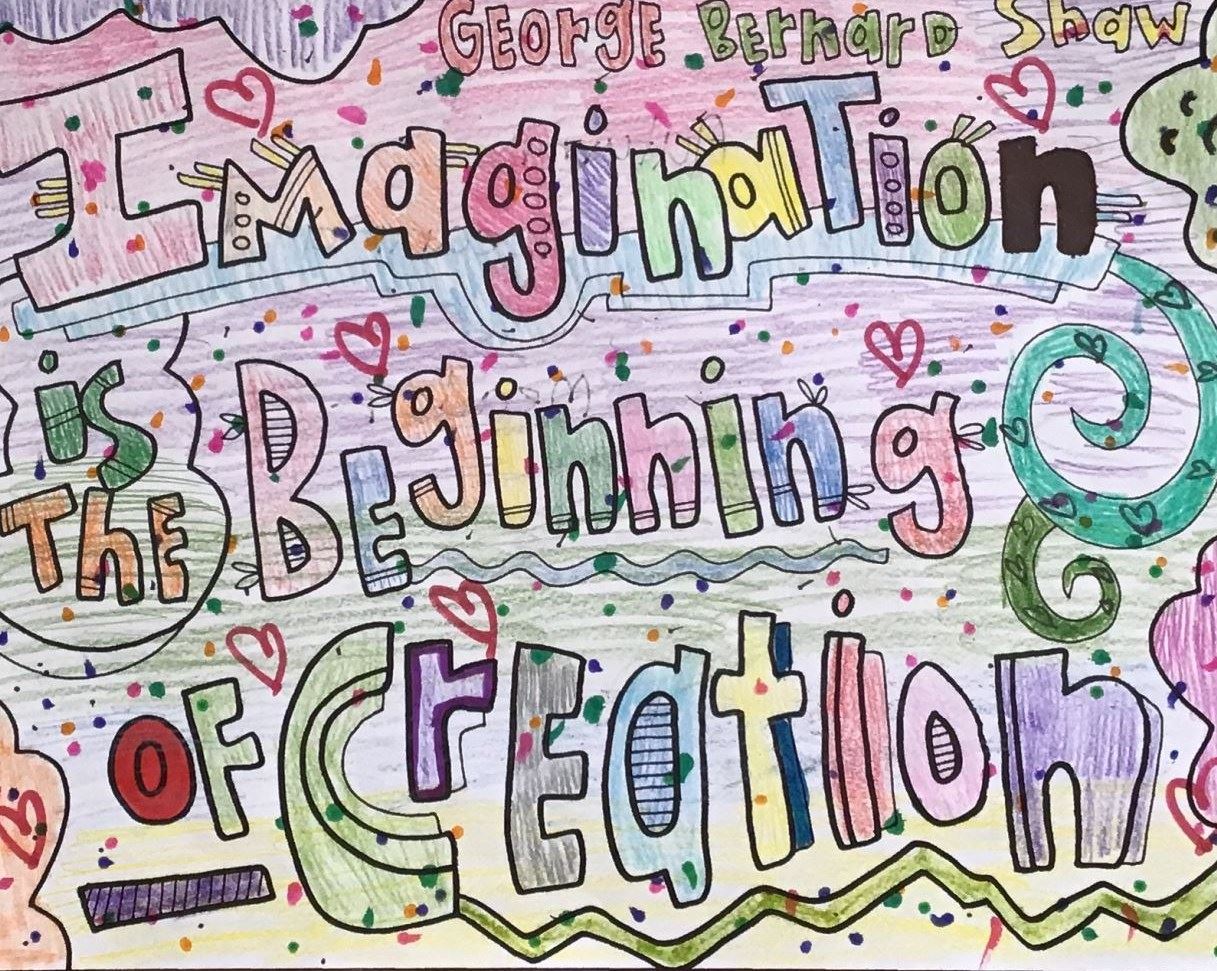 George Bernard Shaw
Imagination
is
The
Beginning
of Creation